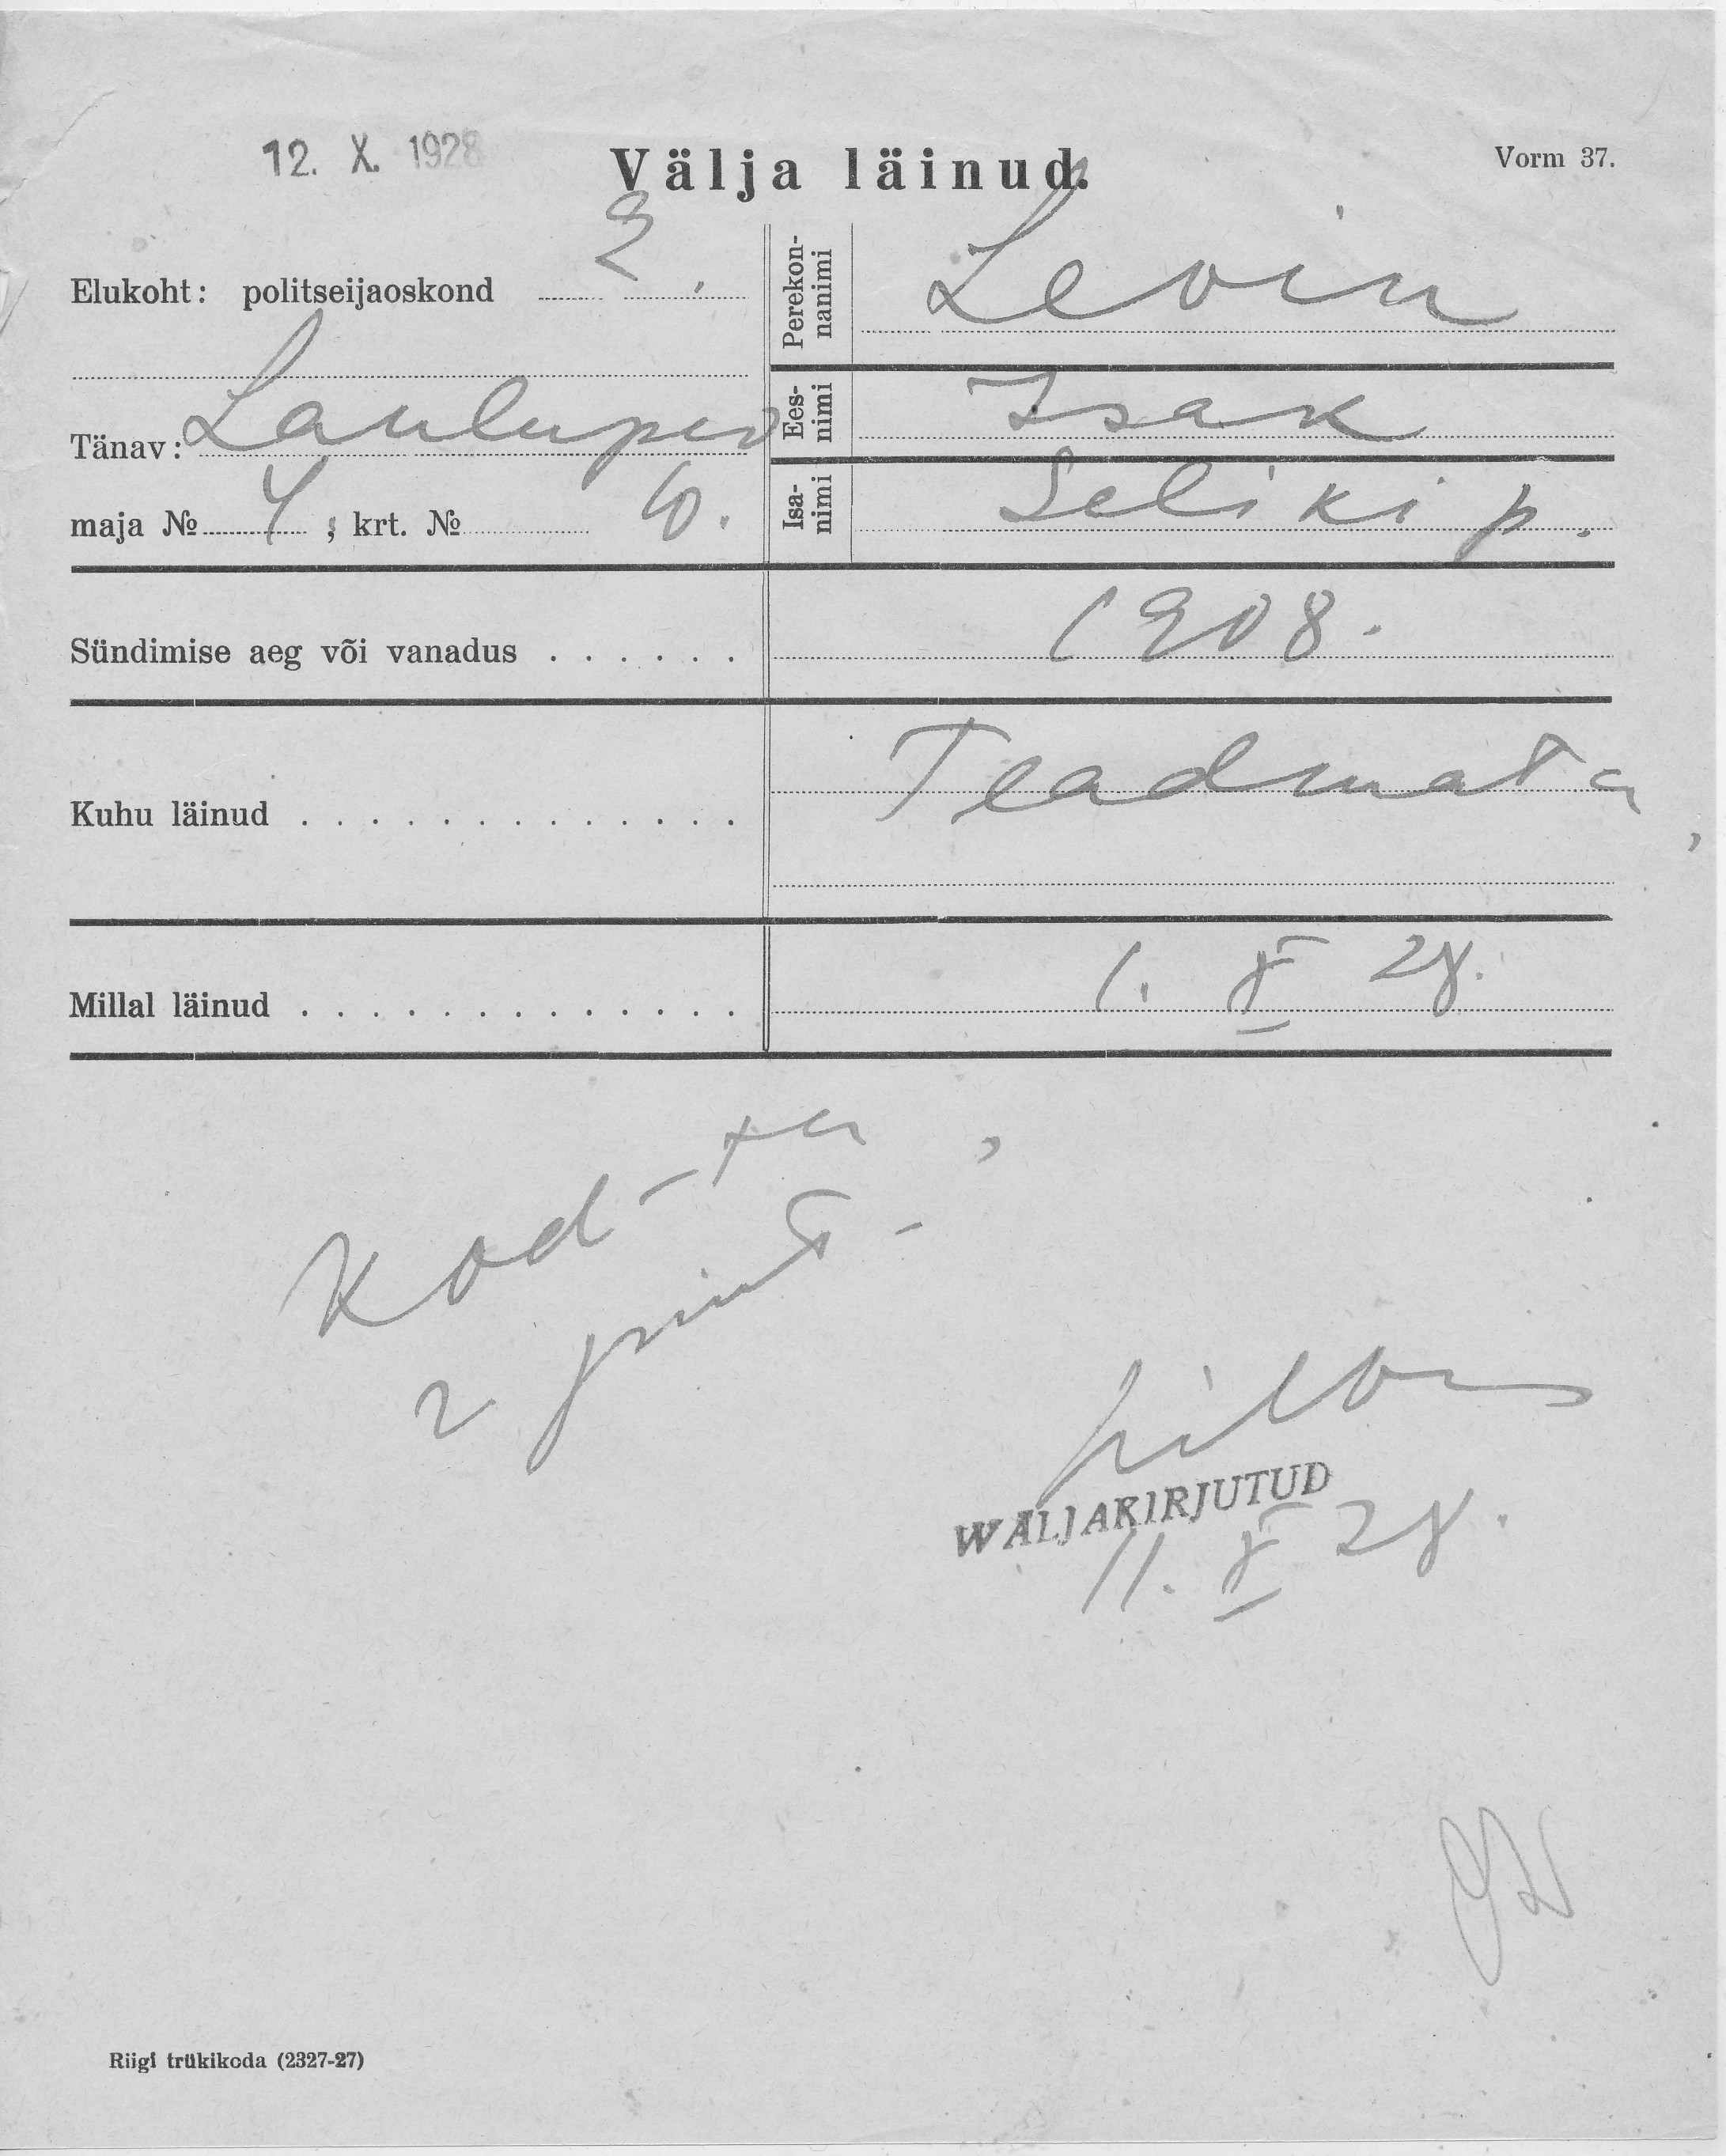 12. X. 1928
Välja läinud.
Vorm 37.
Elukoht: politseijaoskond 2.
Tänav: Laulupeo
maja № 4; krt. № 10.
Perekonnanimi Levin
Eesnimi Isak
Isanimi Seliki p.
Sündimise aeg või vanadus . . . . . . 1908.
Kuhu läinud . . . . . . . . . . . . . Teadmata,
Millal läinud . . . . . . . . . . . . . 1. X 28.
Kod-ta,
WÄLJAKIRJUTUD
11. X 28.
Riigi trükikoda (2327-27)